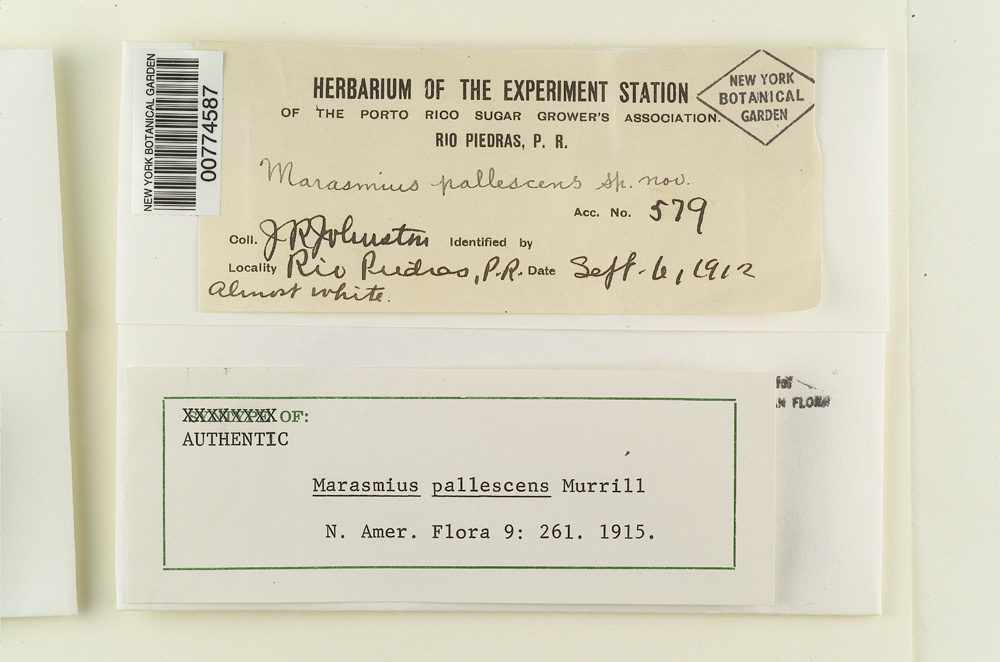 NEW YORK BOTANICAL GARDEN
00774587
HERBARIUM OF THE EXPERIMENT STATION
OF THE PORTO RICO SUGAR GROWER'S ASSOCIATION.
RIO PIEDRAS, P. R.
NEW YORK
BOTANICAL
GARDEN
Marasmius pallescens sp. nov.
Acc. No. 579
Coll. J R Johnston Identified by
Locality Rio Piedras, P.R. Date Sept. 6, 1912
Almost white.
for
FLORA
OF:
AUTHENTIC
Marasmius pallescens Murrill
N. Amer. Flora 9: 261. 1915.